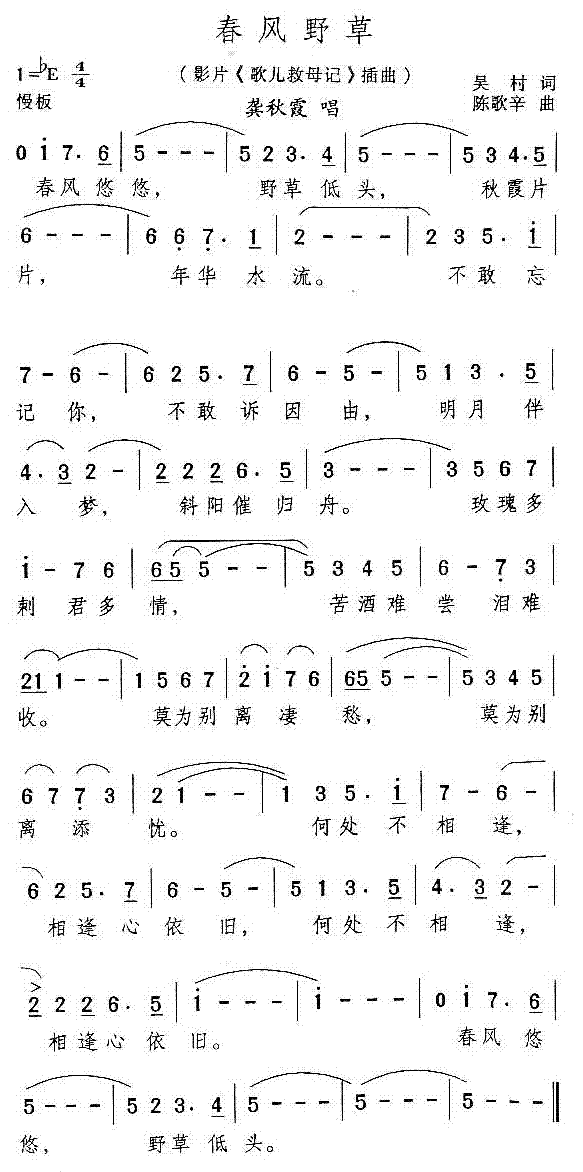 春风野草
1=♭E 4/4 （影片《歌儿救母记》插曲） 吴村 词
慢板 龚秋霞 唱 陈歌辛 曲
0 i 7. 6 | 5 - - - | 5 2 3. 4 | 5 - - - | 5 3 4. 5 |
春风悠悠， 野草低头， 秋霞片
6 - - - | 6 6 7. 1 | 2 - - - | 2 3 5. i |
片， 年华水流。 不敢忘
7 - 6 - | 6 2 5. 7 | 6 - 5 - | 5 1 3. 5 |
记你， 不敢诉因由， 明月伴
4. 3 2 - | 2 2 2 6. 5 | 3 - - - | 3 5 6 7 |
入梦， 斜阳催归舟。 玫瑰多
i - 7 6 | 6 5 5 - - | 5 3 4 5 | 6 - 7 3 |
刺君多情， 苦酒难尝泪难
2 1 1 - - | 1 5 6 7 | 2 i 7 6 | 6 5 5 - - | 5 3 4 5 |
收。 莫为别离凄愁， 莫为别
6 7 7 3 | 2 1 - - | 1 3 5. i | 7 - 6 - |
离添忧。 何处不相逢，
6 2 5. 7 | 6 - 5 - | 5 1 3. 5 | 4. 3 2 - |
相逢心依旧， 何处不相逢，
2 2 2 6. 5 | i - - - | i - - - | 0 i 7. 6 |
相逢心依旧。 春风悠
5 - - - | 5 2 3. 4 | 5 - - - | 5 - - - ‖
悠， 野草低头。